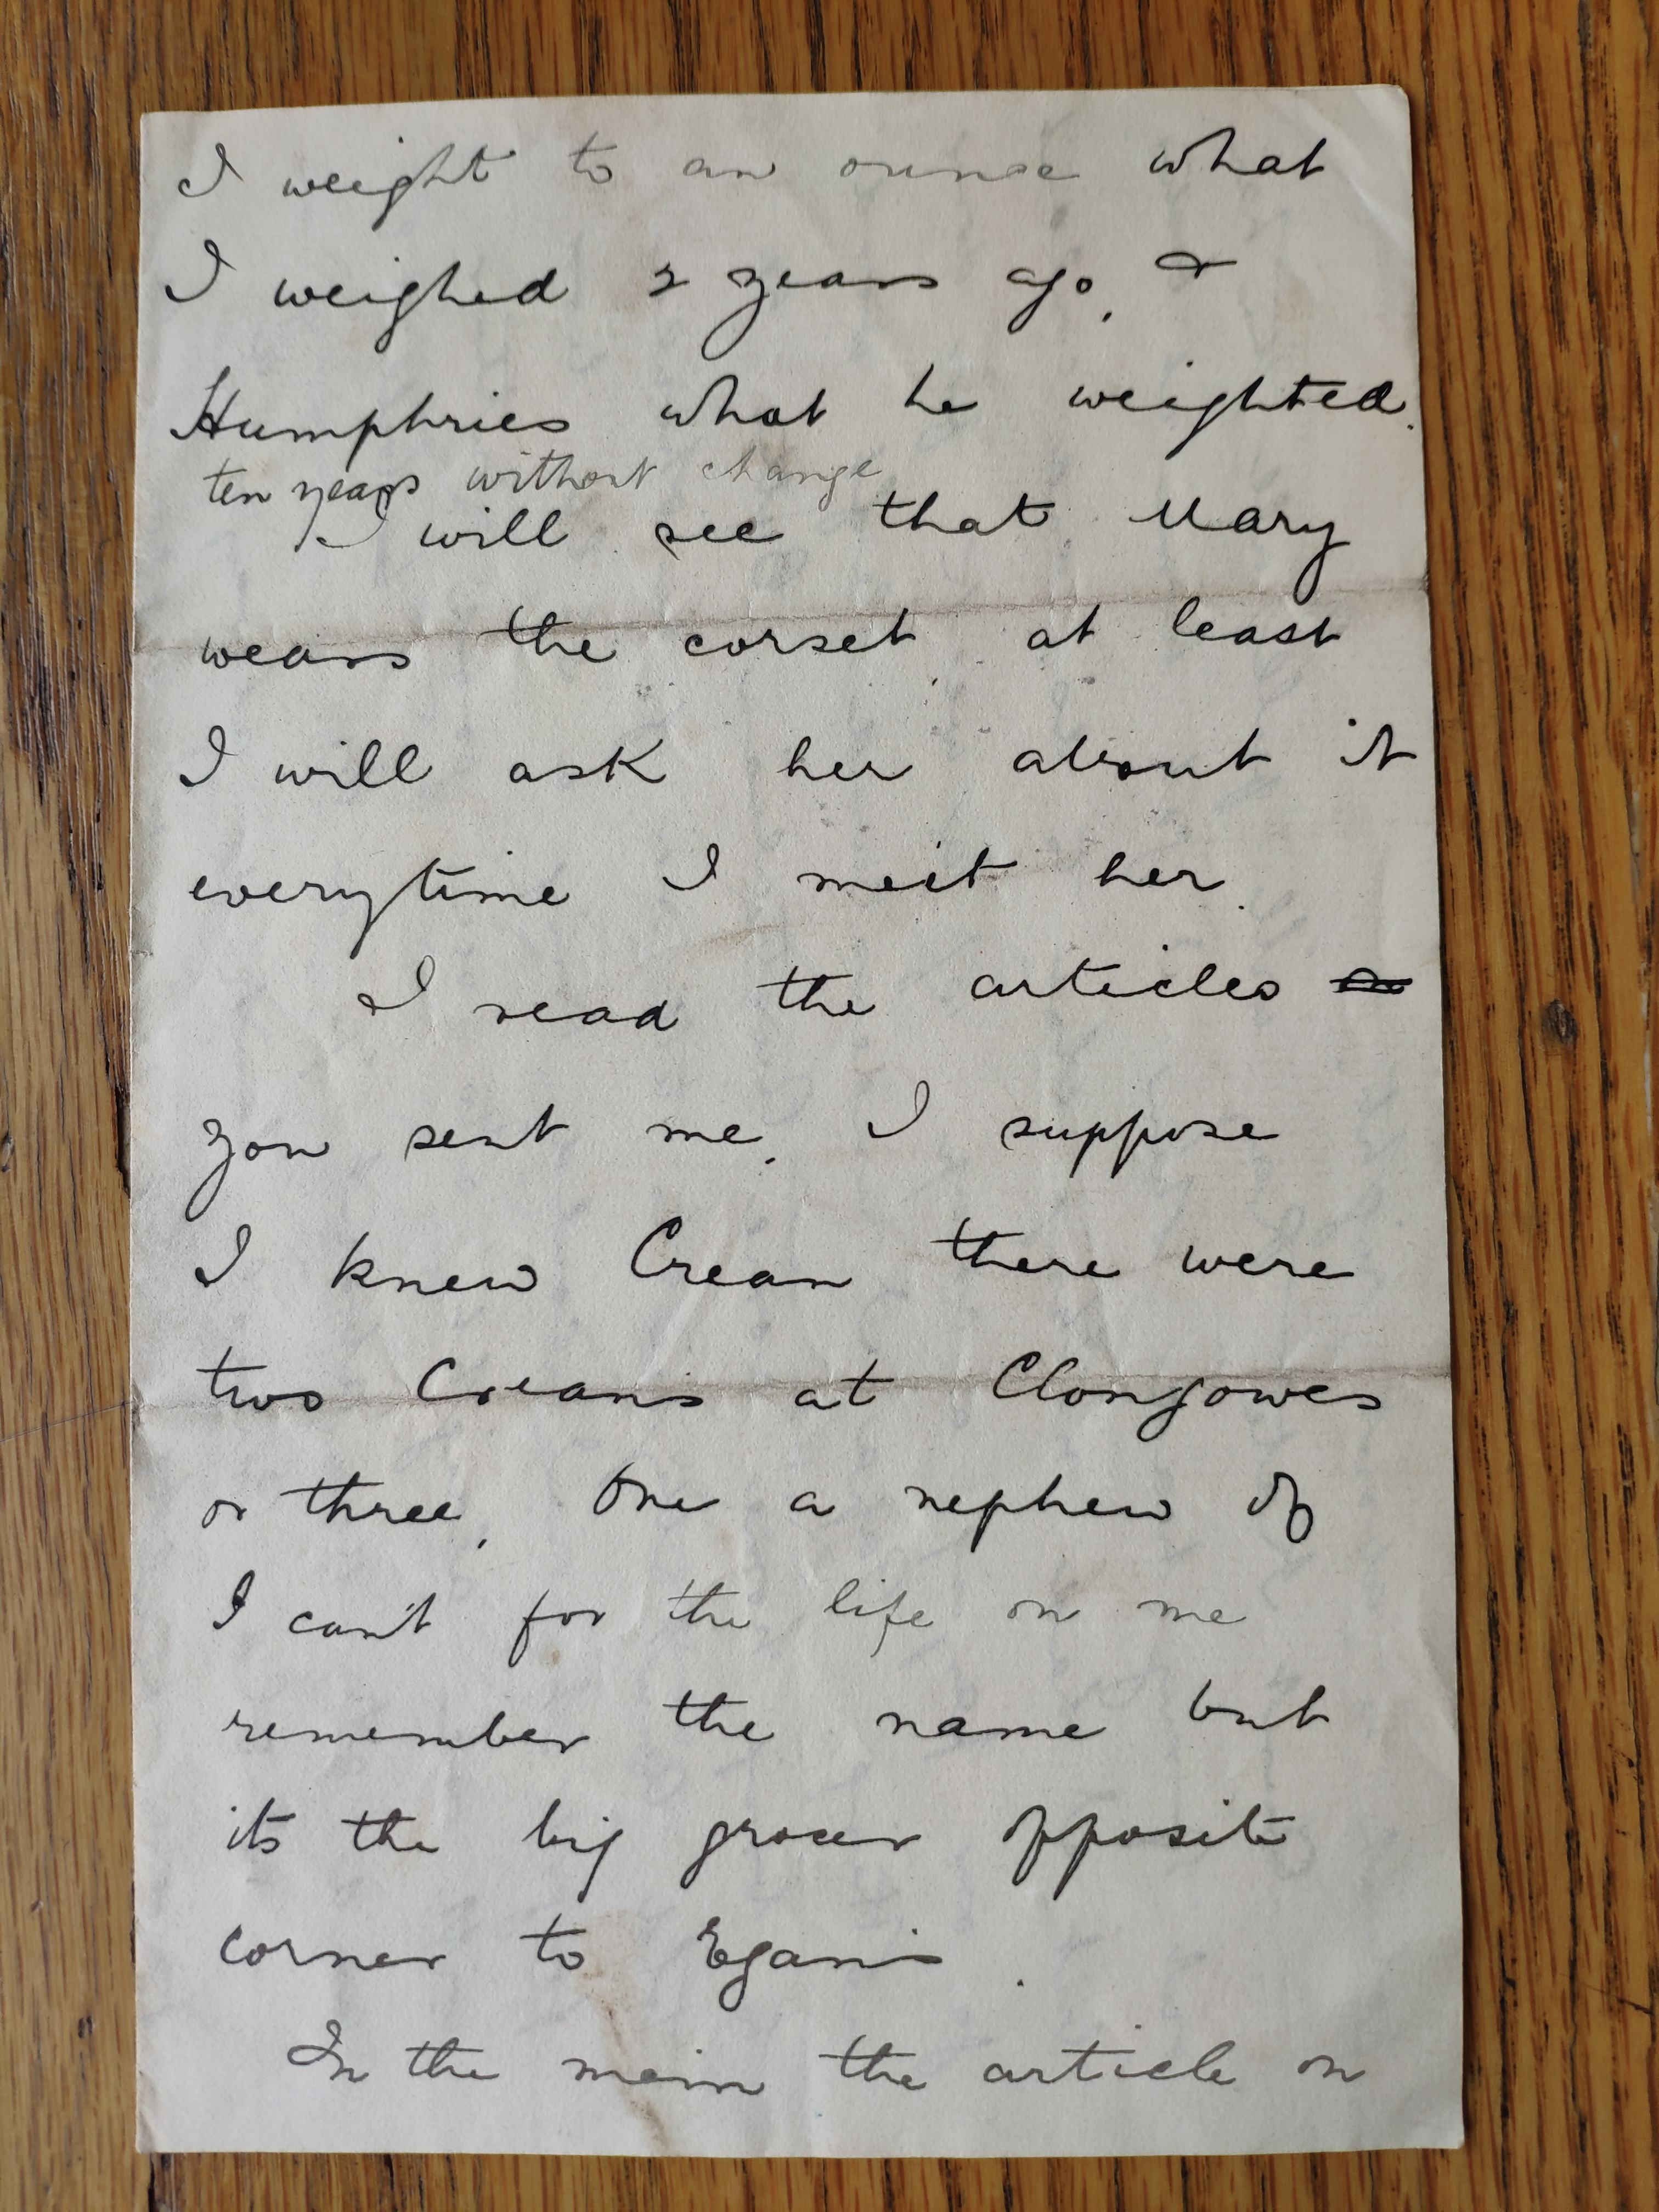 I weight to an ounce what
I weighed 2 years ago, &
Humphries what he weighted.
ten years without change
I will see that Mary
wears the corset, at least
I will ask her about it
everytime I meet her.
I read the articles
you sent me. I suppose
I knew Crean there were
two Creans at Clongowes
or three, one a nephew of
I can't for the life on me
remember the name but
its the big grocer opposite
corner to Egan's.
In the main the article on